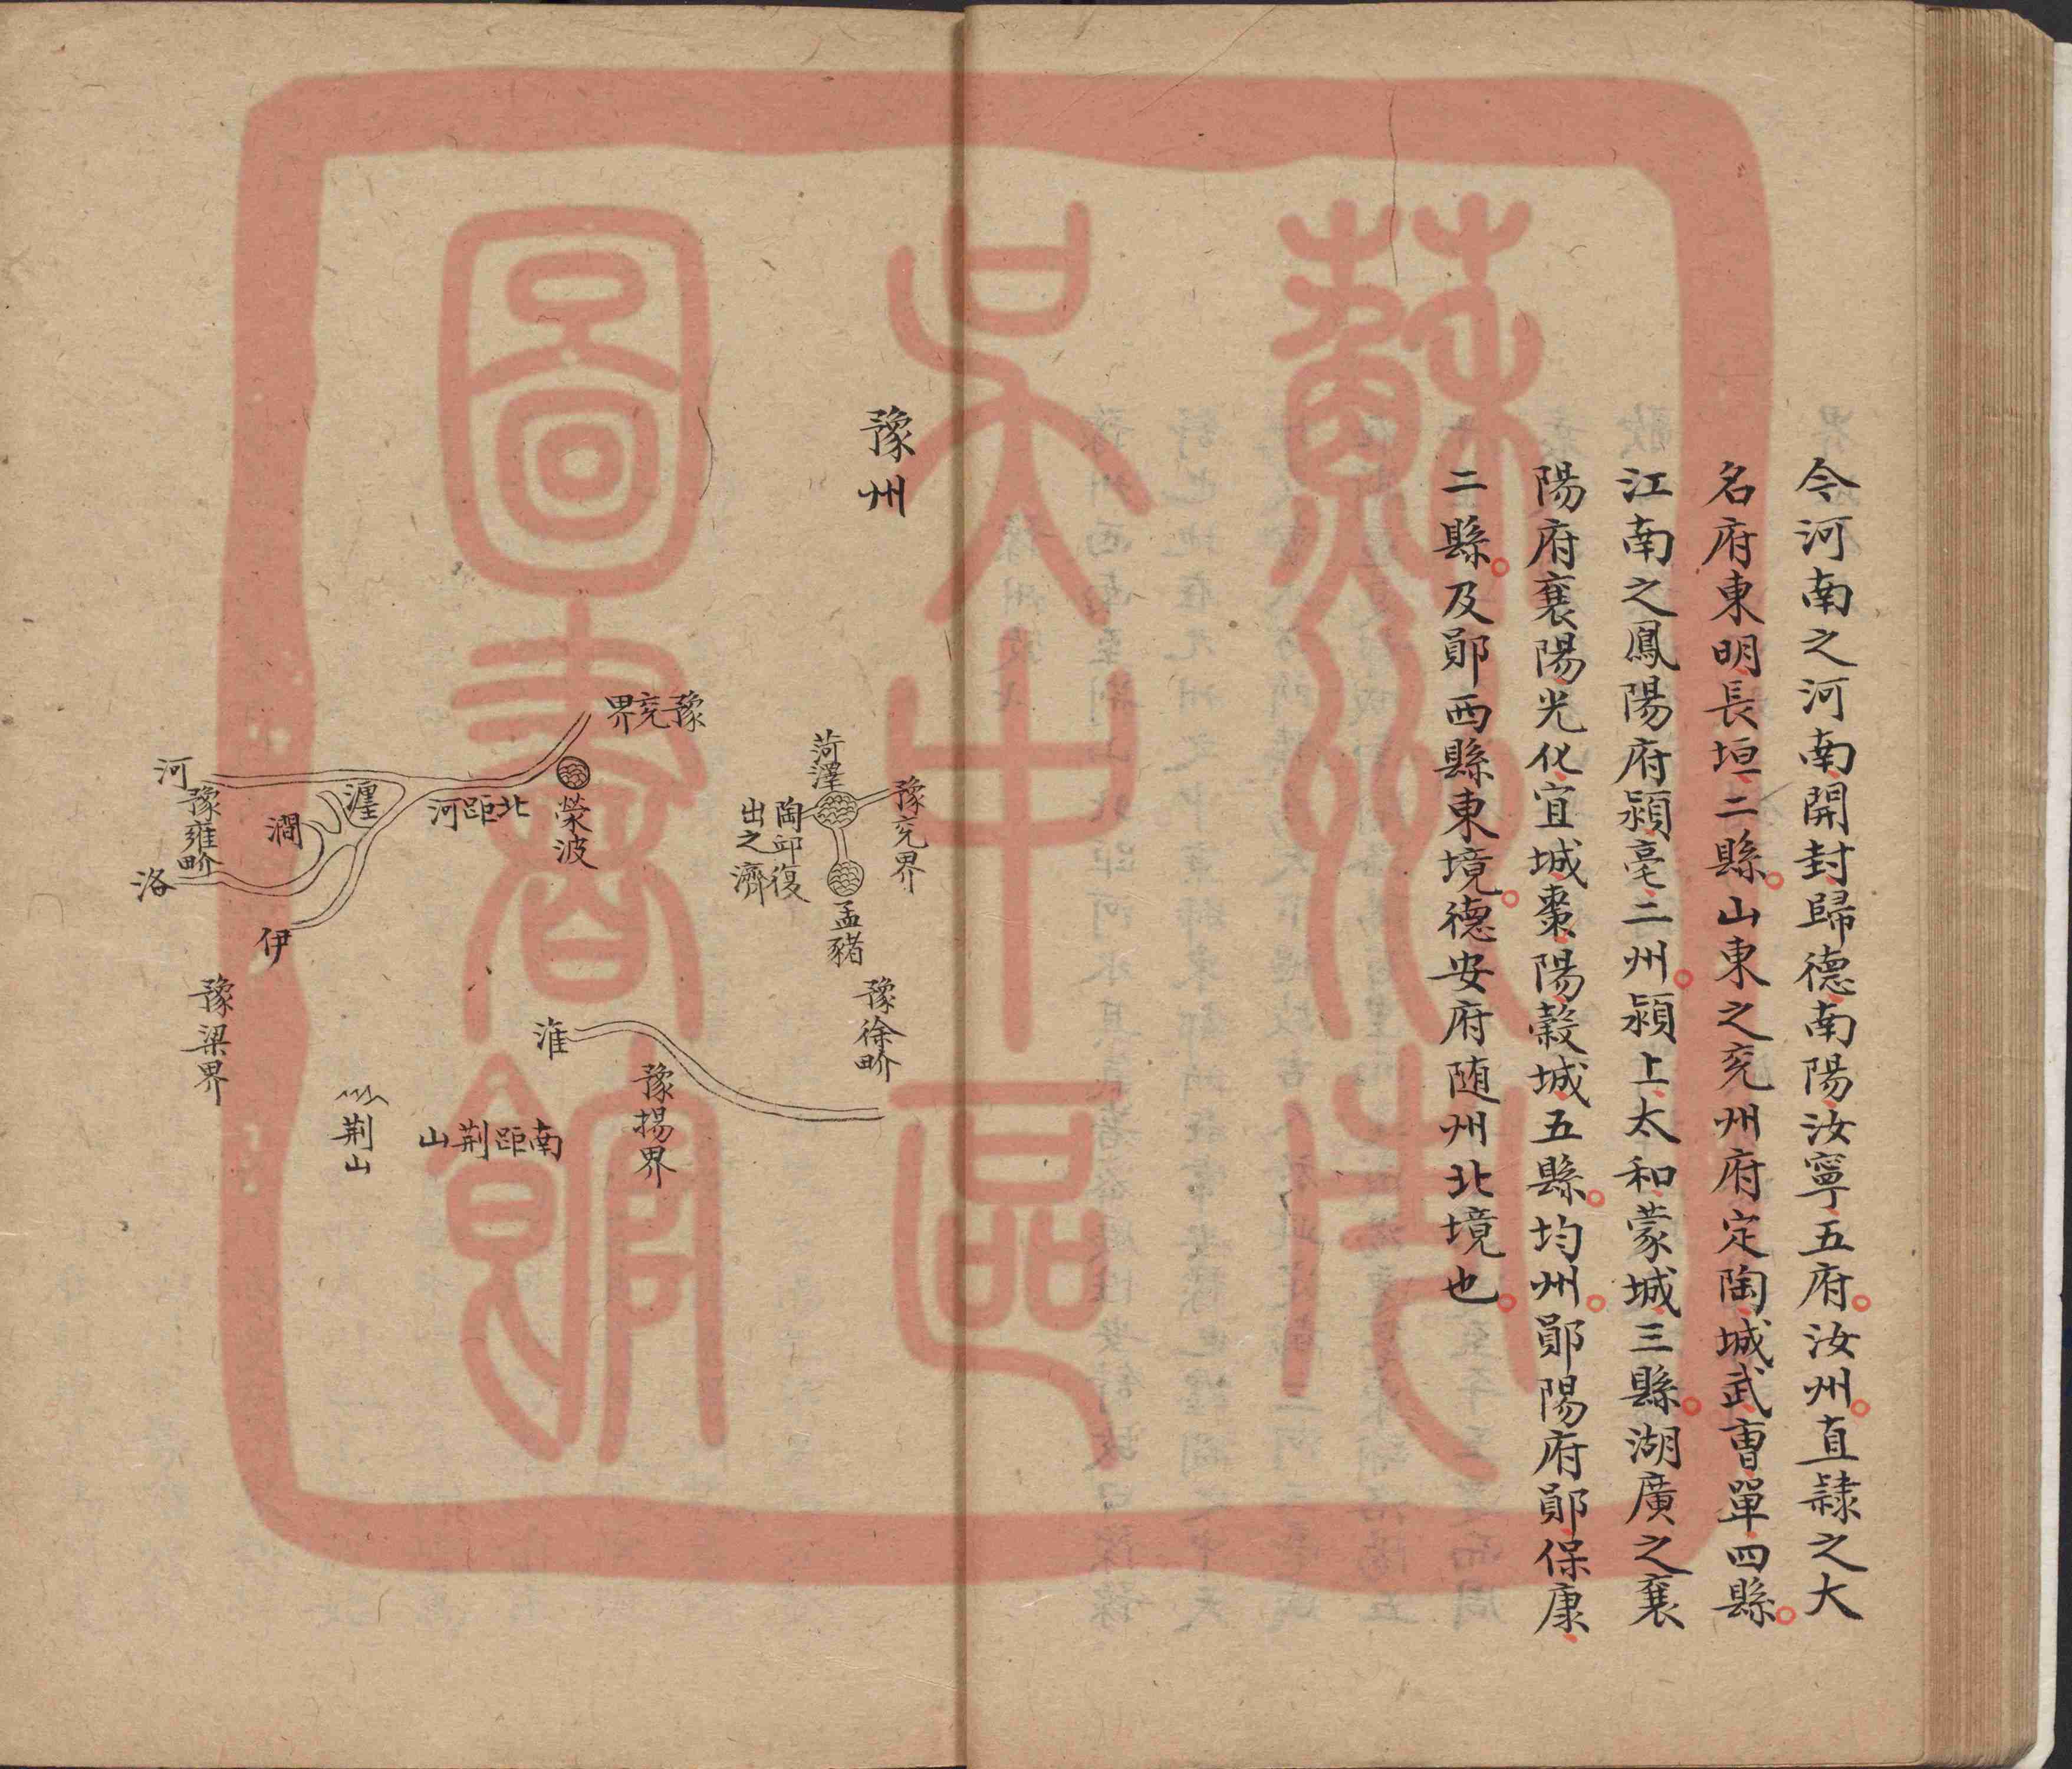 今河南之河南開封歸德南陽汝寧五府。汝州。直隸之大
名府東明長垣二縣。山東之兖州府定陶城武曹單四縣。
江南之鳳陽府潁亳二州。潁上太和蒙城三縣。湖廣之襄
陽府襄陽光化宜城棗陽穀城五縣。均州。鄖陽府鄖保康
二縣。及鄖西縣東境。德安府随州北境也。
豫州
豫兖界
菏澤
陶邱復
出之濟
孟豬
豫徐畍
豫兖界
滎波
北距河
瀍
澗
河
豫雍畍
洛
伊
豫梁界
淮
豫揚界
南距荆山
荆山
蘇州市
吴中區
圖書館